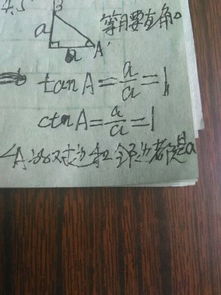 4.5
B
等腰直角。
a
a A
tan A = a/a = 1
ctn A = a/a = 1
∠A的对边和邻边都是a